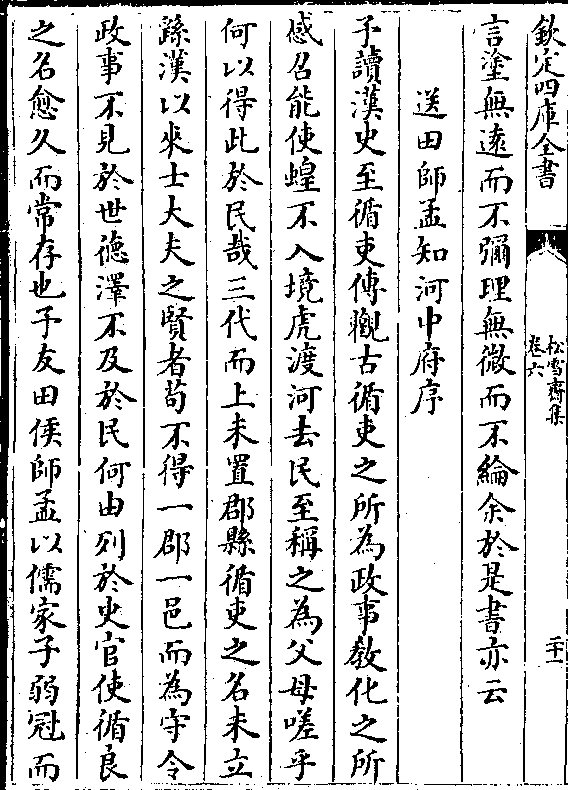 欽定四庫全書
松雪齋集
卷六
二十一
言塗無遠而不彌理無微而不綸余於是書亦云
送田師孟知河中府序
予讀漢史至循吏傳觀古循吏之所為政事教化之所
感召能使蝗不入境虎渡河去民至稱之為父母嗟乎
何以得此於民哉三代而上未置郡縣循吏之名未立
繇漢以來士大夫之賢者苟不得一郡一邑而為守令
政事不見於世徳澤不及於民何由列於史官使循良
之名愈久而常存也予友田侯師孟以儒家子弱冠而